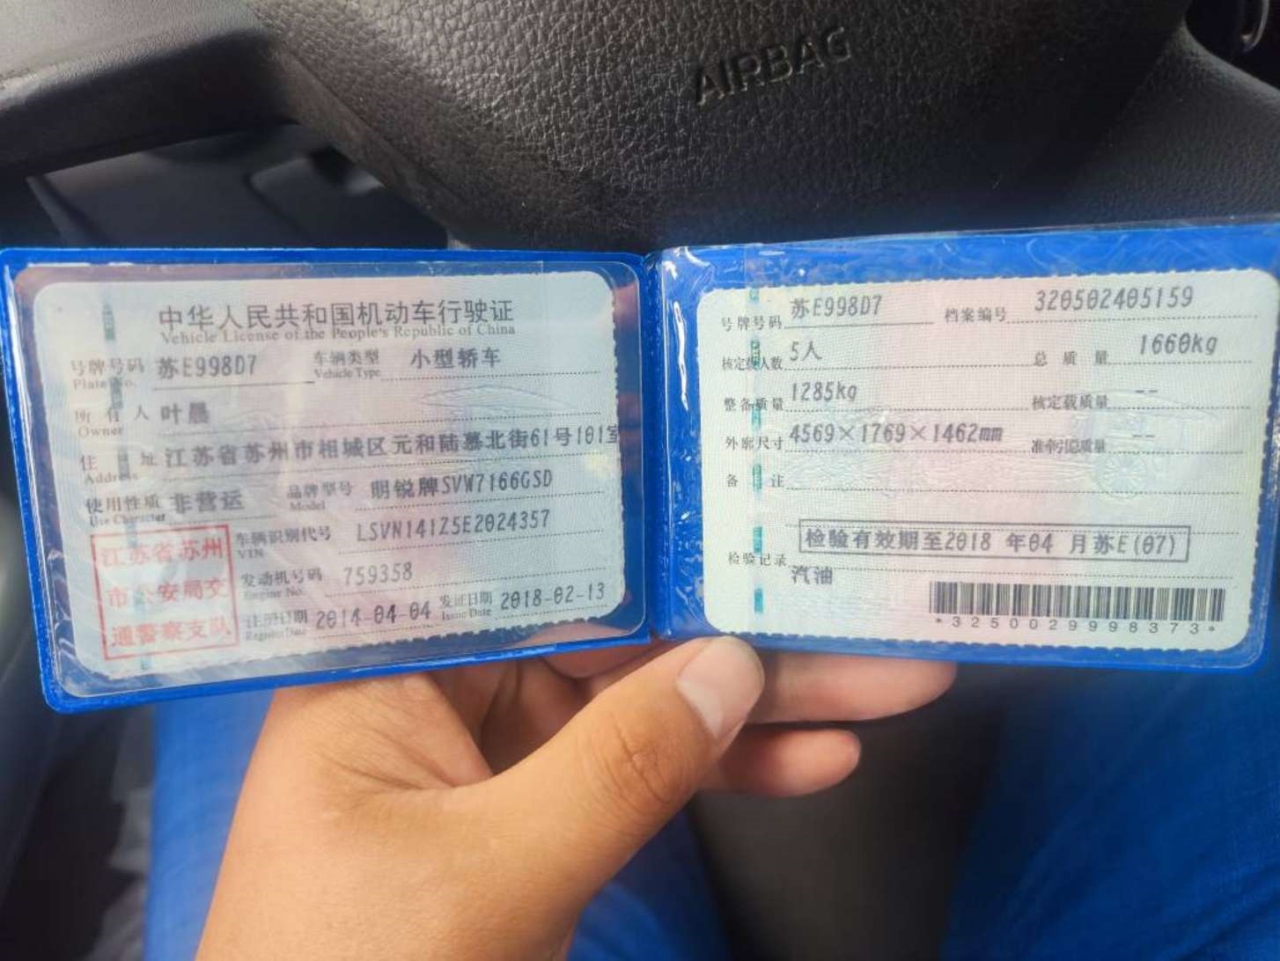 AIRBAG
中华人民共和国机动车行驶证
Vehicle License of the People's Republic of China
号牌号码 苏E998D7 车辆类型 小型轿车
Plate No. Vehicle Type
所有人 叶晨
Owner
住址 江苏省苏州市相城区元和陆慕北街61号101室
Address
使用性质 非营运 品牌型号 明锐牌SVW7166GSD
Use Character Model
江苏省苏州
市公安局交
通警察支队
车辆识别代号 LSVN141Z5E2024357
VIN
发动机号码 759358
Engine No.
注册日期 2014-04-04 发证日期 2018-02-13
Register Date Issue Date
号牌号码 苏E998D7 档案编号 320502405159
核定载人数 5人 总质量 1660kg
整备质量 1285kg 核定载质量 --
外廓尺寸 4569×1769×1462mm 准牵引总质量 --
备注
检验记录 检验有效期至2018 年04 月苏E(07)
汽油
*3250029998373*